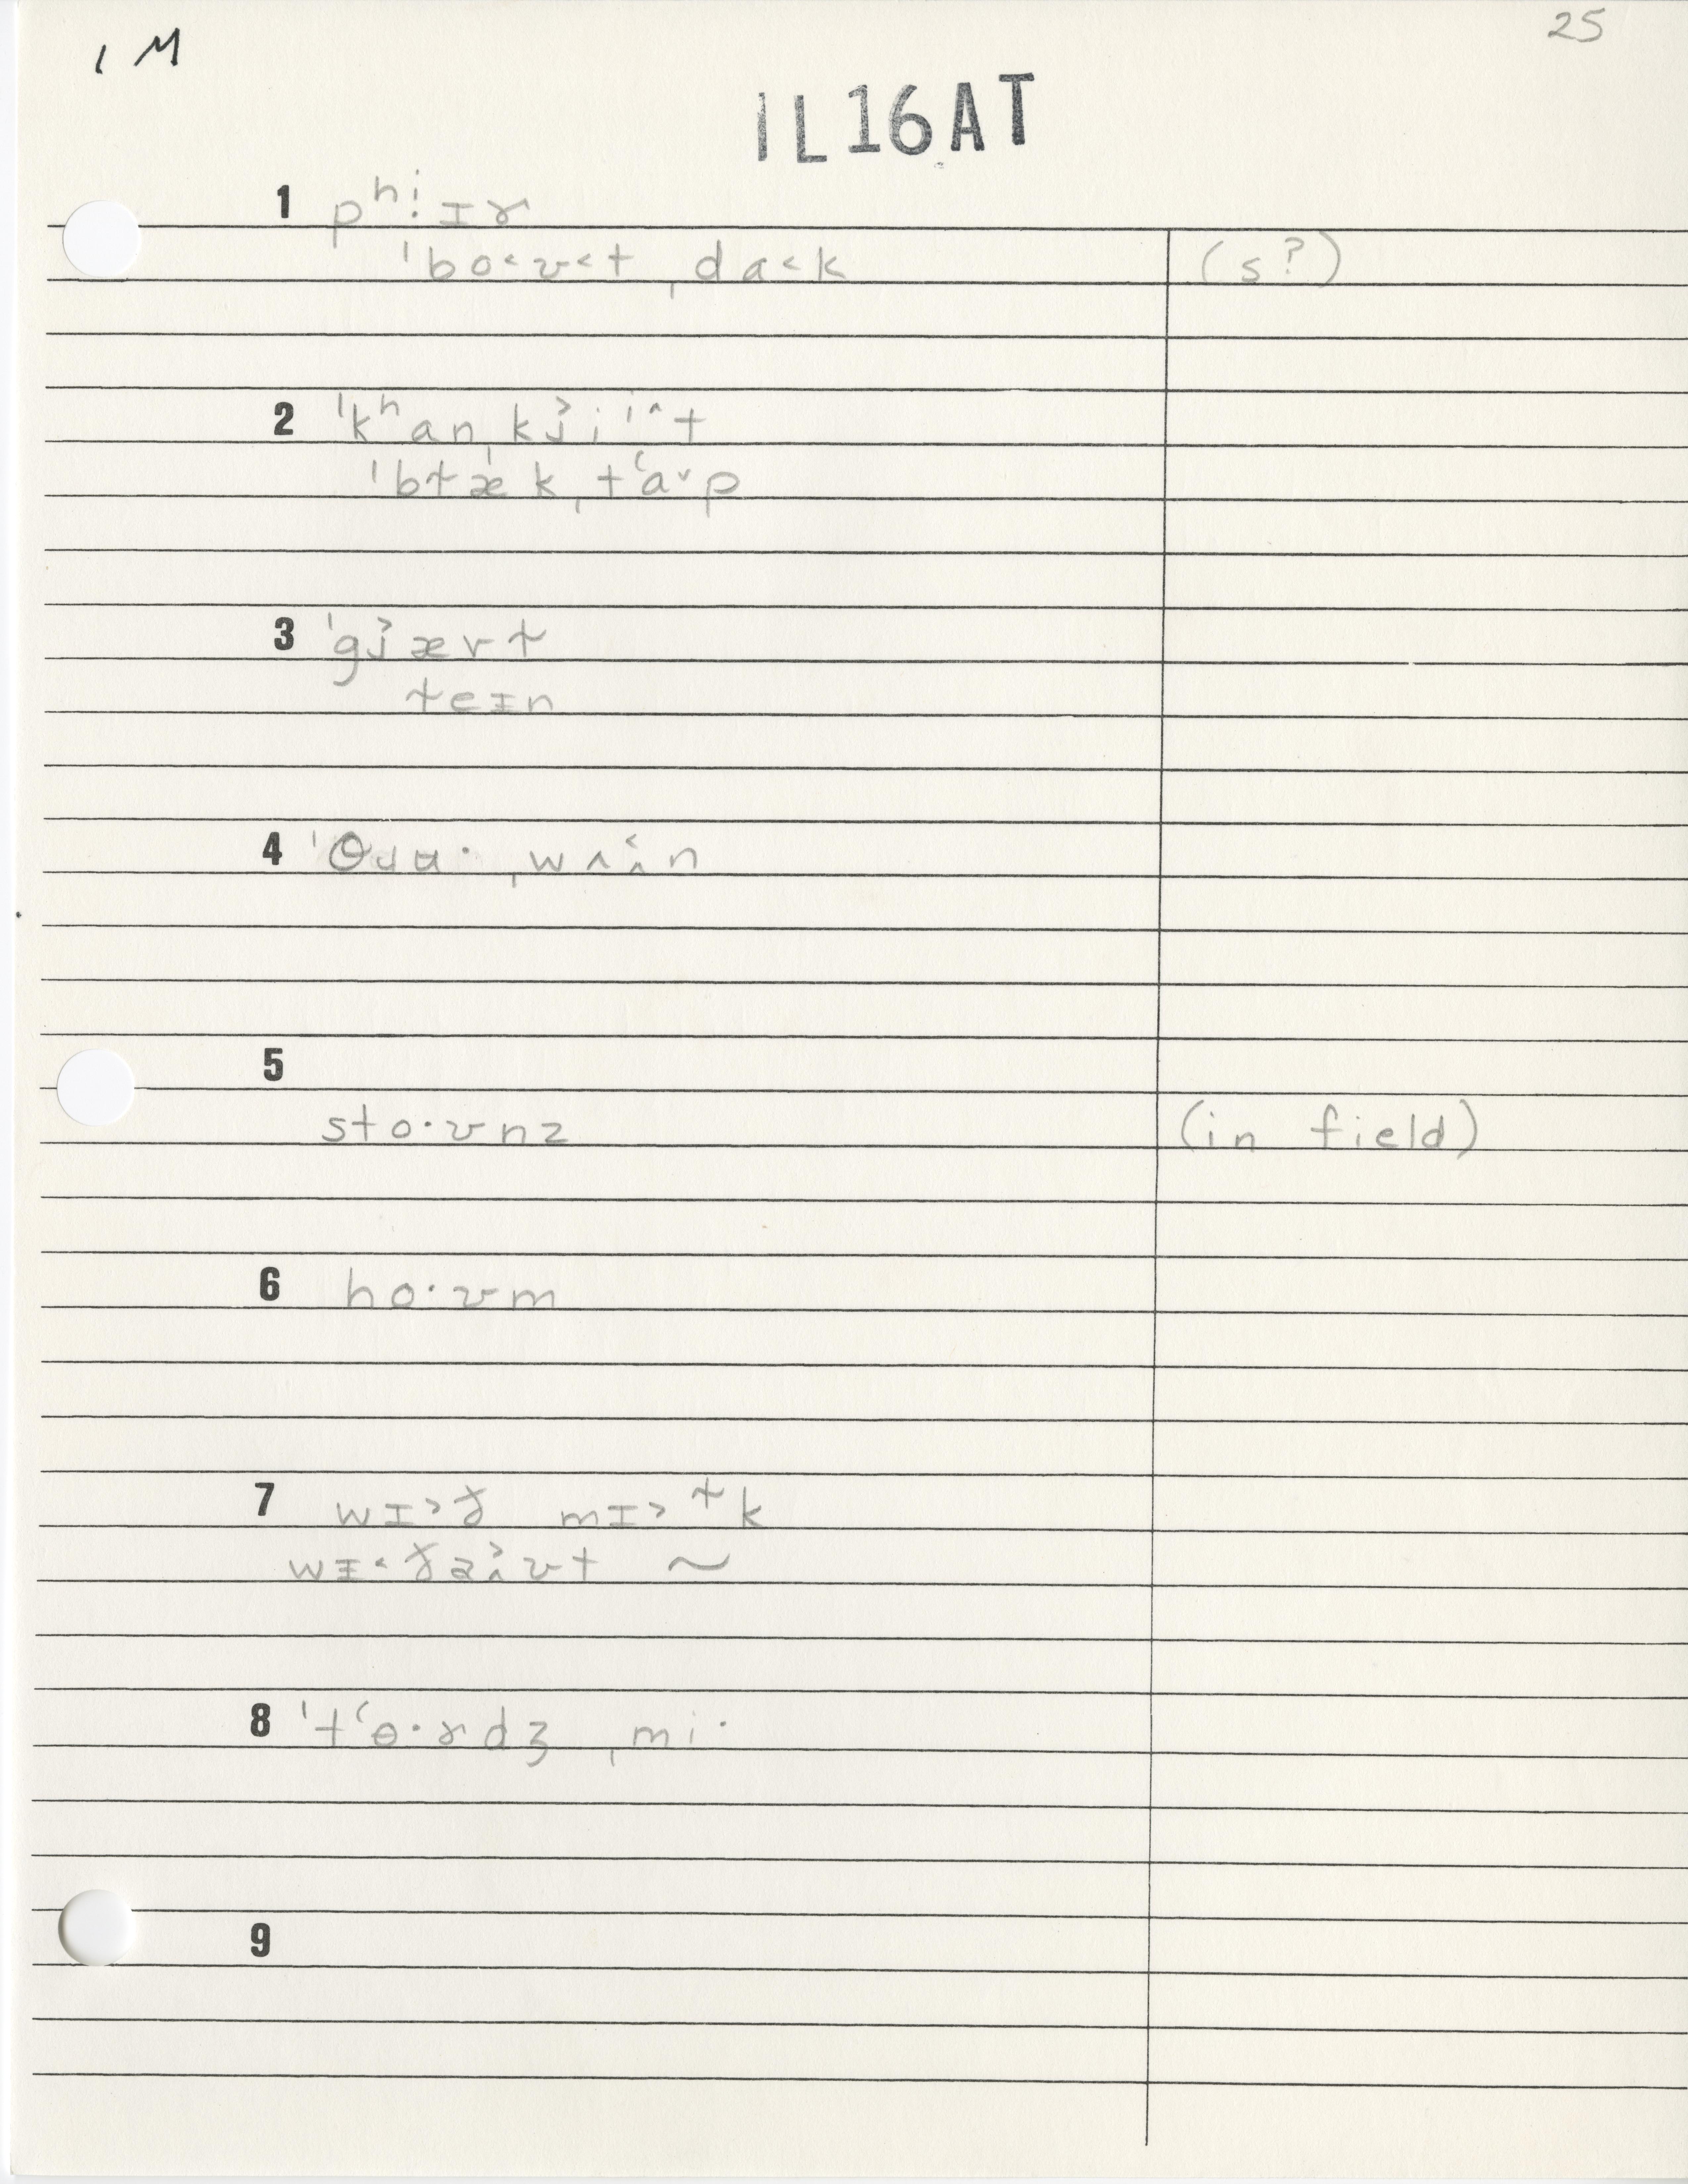 1 M
25
IL16AT
1 pʰi̇: ɪɚ
ˈbo˂ʊ˂t ˌda˂k (s?)
2 ˈkʰan ˌkj˃iⁱ^t
ˈbɫæk ˌtʻa˅p
3 ˈgj˃ærɫ
ɫeɪn
4 ˈθɹʉ· ˌwʌ̭˂n
5
sto·ʊnz (in field)
6 ho·ʊm
7 wɪ˃ð mɪ˃ɫk
wɪ˂ða̭˃ʊt ~
8 ˈtʻɵ·ɚdʒ ˌmi·
9